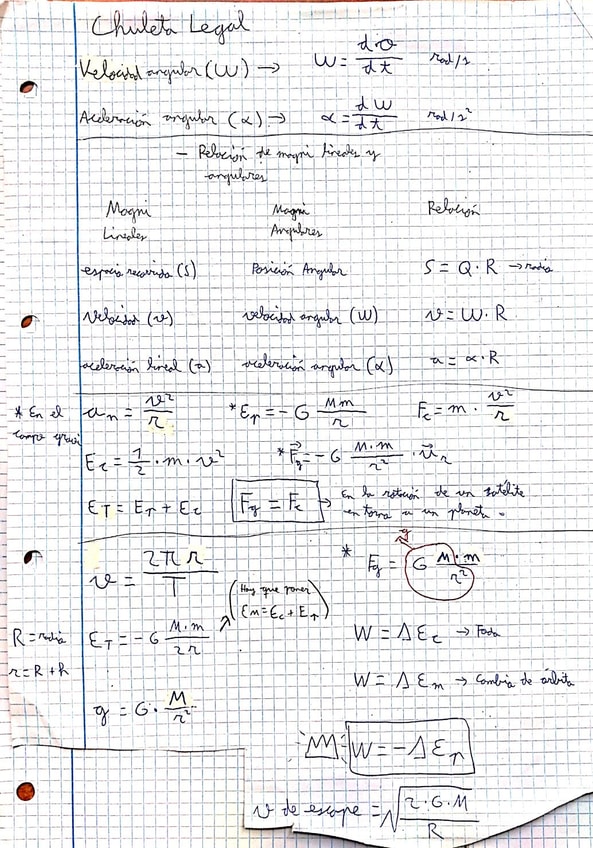 Chuleta Legal
Velocidad angular (W) → W = dΘ/dt rad/s
Aceleración angular (α) → α = dW/dt rad/s²
- Relación de magni lineales y
angulares
Magni Magni Relación
Lineales Angulares
espacio recorrido (S) Posición Angular S = Q · R → radio
Velocidad (v) velocidad angular (W) v = W · R
aceleración lineal (a) aceleración angular (α) a = α · R
* En el
campo gravi
an = v²/r * Ep = - G Mm/r Fc = m · v²/r
Ec = 1/2 · m · v² * Fg = - G M·m/r² · ur
ET = Ep + Ec Fg = Fc → en la rotación de un satélite
en torno a un planeta.
v = 2πr/T * Fg = G M·m/r² g
(Hay que poner
Em = Ec + Ep)
R = radio ET = - G M·m/2r W = Δ Ec → Toda
r = R + h W = Δ Em → Cambio de órbita
g = G · M/r²
W = - Δ Ep
v de escape = √2·G·M/R